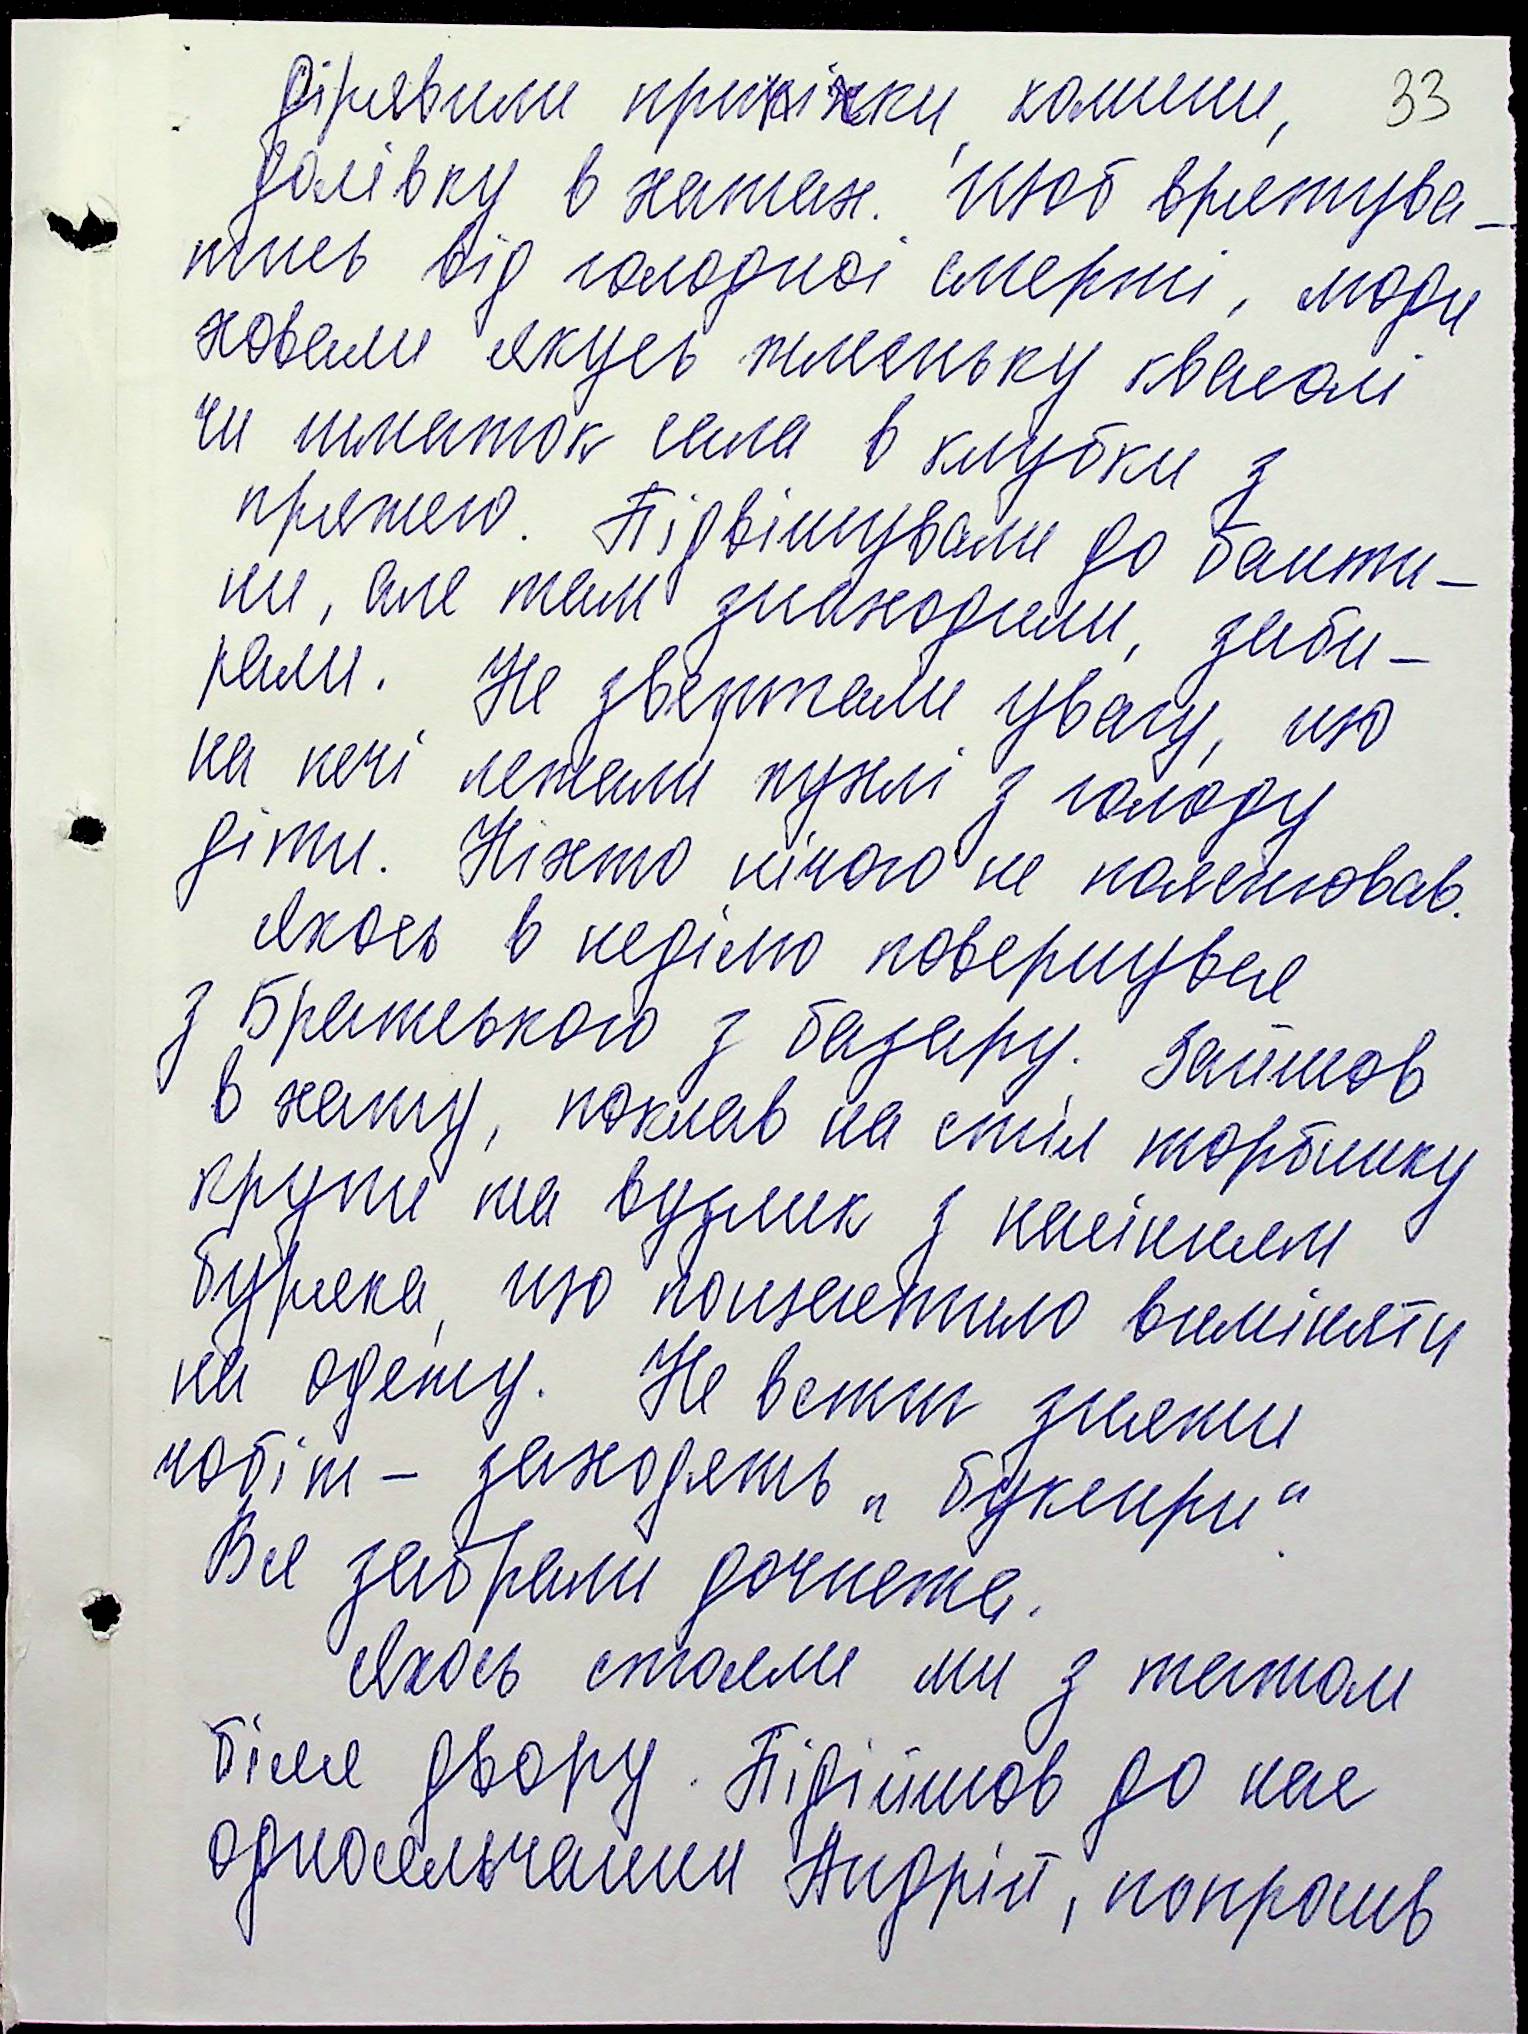 33
Дірявили припічки, комини,
долівку в хатах. Щоб врятува-
тись від голодної смерті, люди
ховали якусь жменьку квасолі
чи шматок сала в клубки з
пряжею. Підвішували до банти-
ни, але там знаходили, заби-
рали. Не звертали увагу, що
на печі лежали пухлі з голоду
діти. Ніхто нічого не полєгював.
Якось в неділю повернувся
з Братського з базару. Зайшов
в хату, поклав на стіл торбинку
крупи та вузлик з насінням
буряка, що пощастило виміняти
на одежу. Не встиг зняти
чобіт – заходять „букеири“.
Все забрали дочиста.
Якось стояли ми з татом
біля двору. Підійшов до нас
односельчанин Андрій, попросив